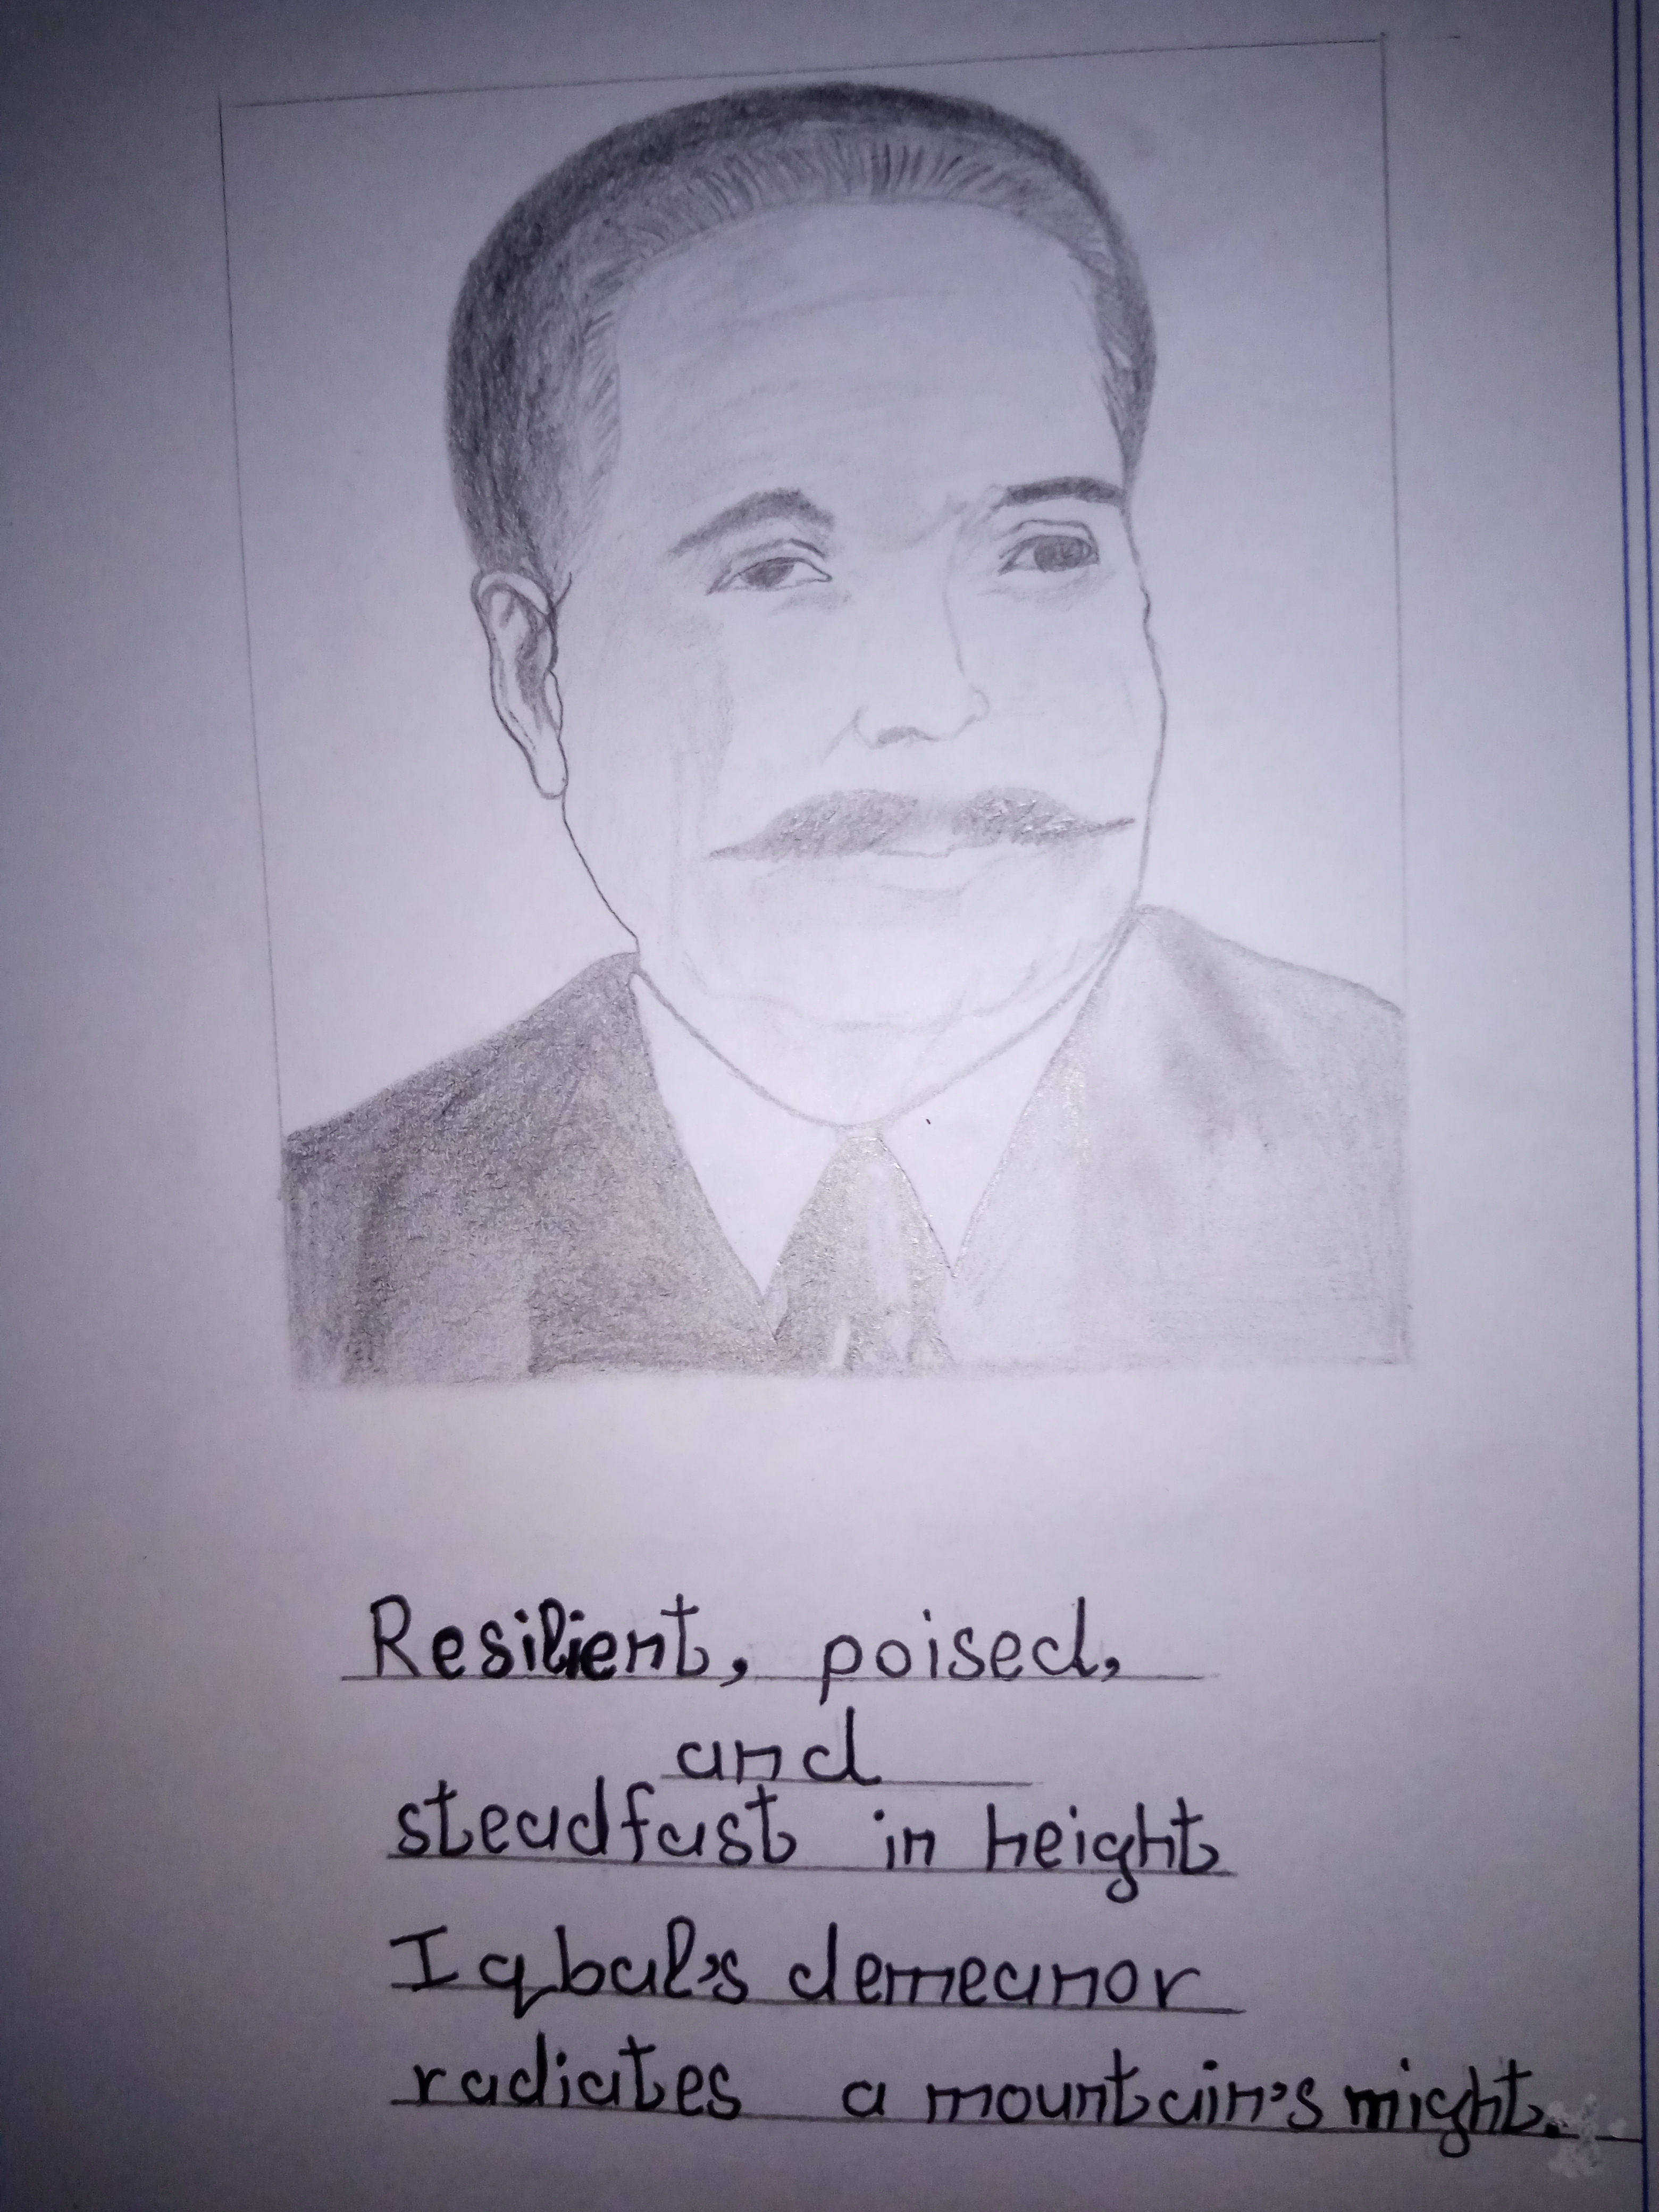 Resilient, poised,
and
steadfast in height
Iqbal's demeanor
radiates a mountain's might.